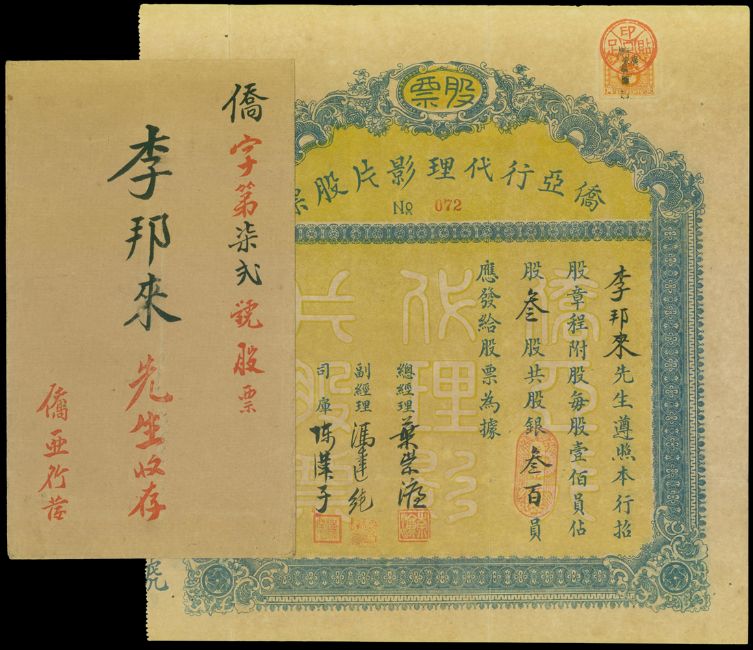 僑字第柒弍號股票
李邦來先生收存
僑亞行
股票
僑亞行代理影片股票
No 072
李邦來先生遵照本行招
股章程附股每股壹佰員佔
股叁股共股銀叁百員
應發給股票為據
總經理
副經理
司庫
僑亞行
代理影
片股票